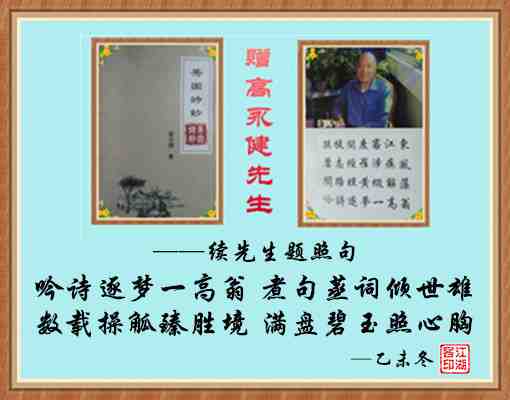 赠高永健先生
吟詩逐夢一高翁
——续先生题照句
吟诗逐梦一高翁 煮句蒸词倾世雄
数载操觚臻胜境 满盘碧玉照心胸
—乙未冬
江湖客印